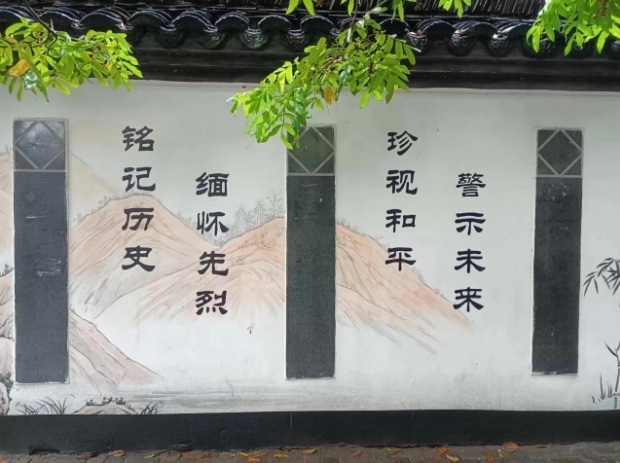 铭记历史
缅怀先烈
珍视和平
警示未来